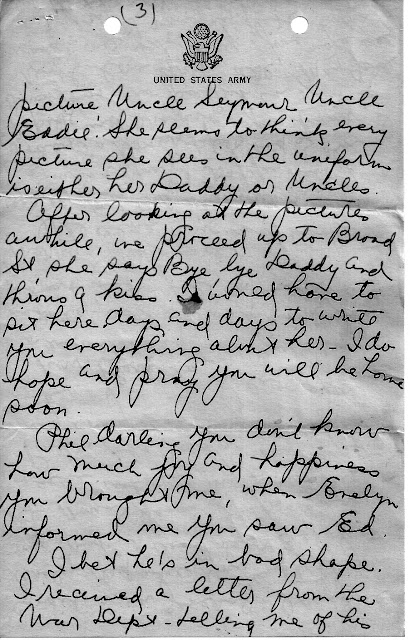 (3)
UNITED STATES ARMY
picture Uncle Seymour Uncle
Eddie. She seems to think every
picture she sees in the uniform
is either her Daddy or Uncles.
After looking at the pictures
awhile, we proceed up to Broad
St, she says Bye bye Daddy and
throws a kiss. I would have to
sit here days and days to write
you everything about her - I do
hope and pray you will be home
soon.
Phil darling you don't know
how much joy and happiness
you brought me, when Evelyn
informed me you saw Ed.
I bet he's in bad shape.
I received a letter from the
War Dept - telling me of his